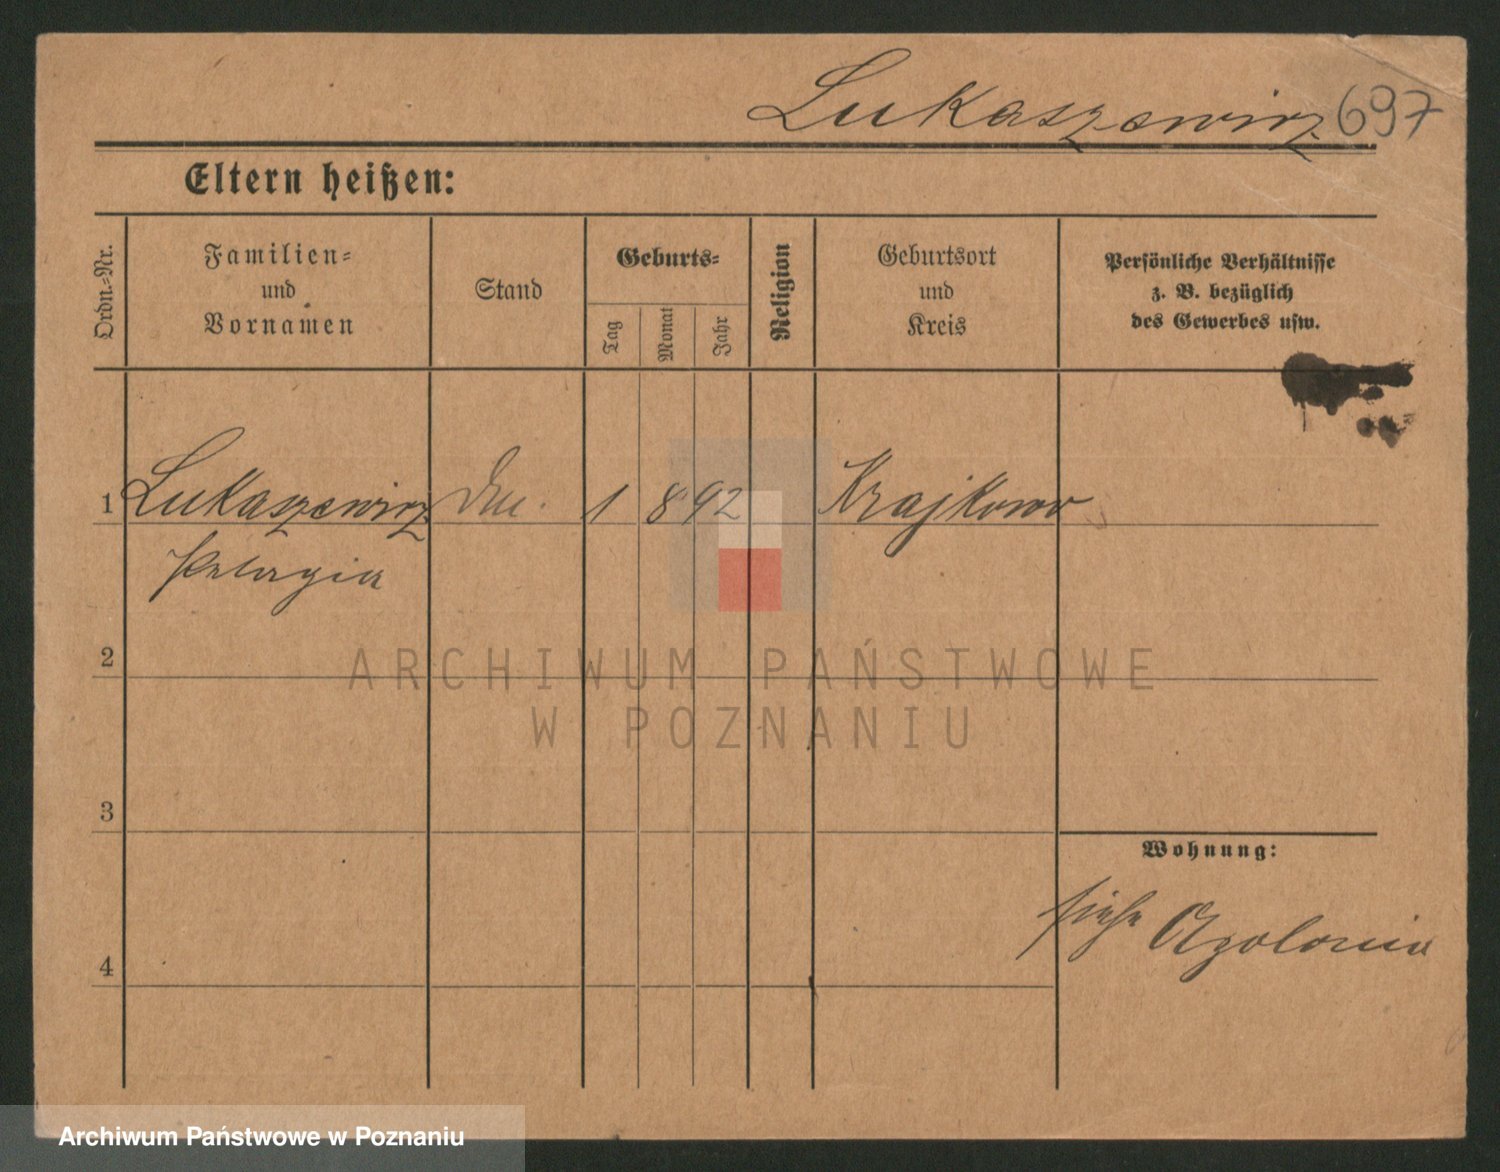 Lukaszewicz 697
Eltern heißen:
Ordn.-Nr.
Familien-
und
Vornamen
Stand
Geburts-
Tag
Monat
Jahr
Religion
Geburtsort
und
Kreis
Persönliche Verhältnisse
z. B. bezüglich
des Gewerbes usw.
1 Lukaszewicz 1 8 92 Krajkowo
Pelagia
2
3
4
Wohnung:
siehe Apolonia
ARCHIWUM PAŃSTWOWE
W POZNANIU
Archiwum Państwowe w Poznaniu